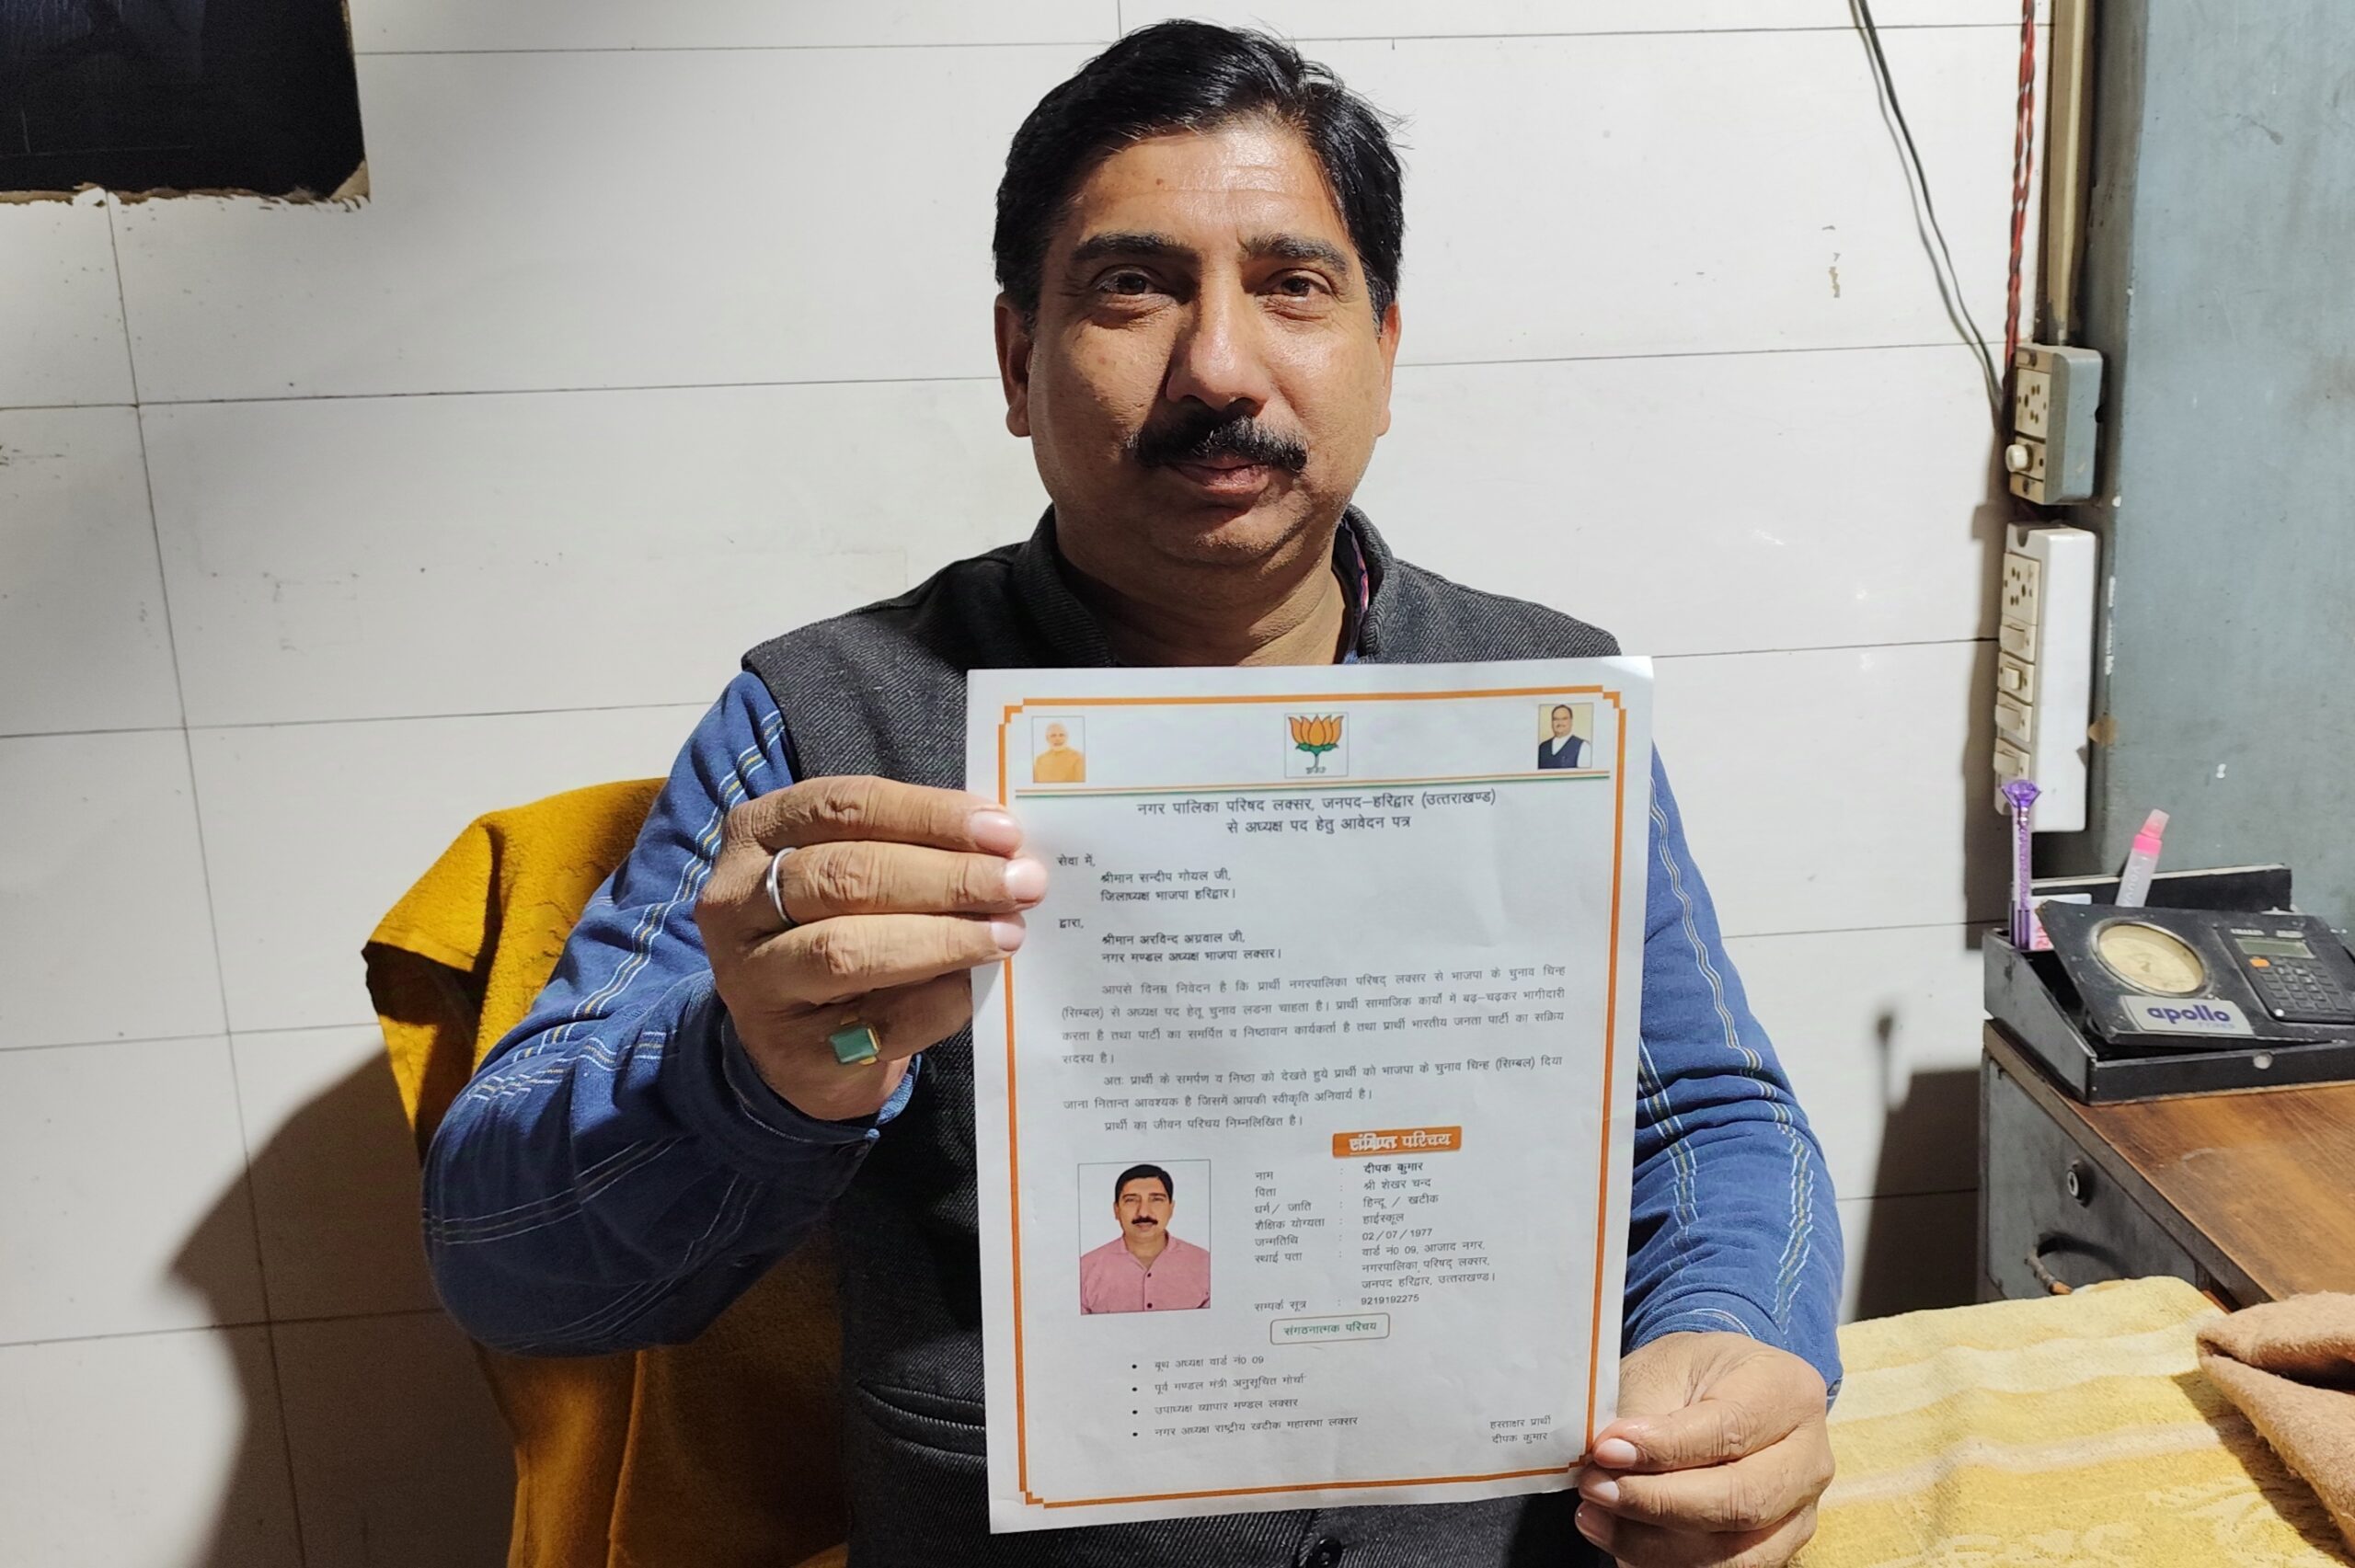 नगर पालिका परिषद लक्सर, जनपद–हरिद्वार (उत्तराखण्ड)
से अध्यक्ष पद हेतु आवेदन पत्र
सेवा में,
श्रीमान सन्दीप गोयल जी,
जिलाध्यक्ष भाजपा हरिद्वार।
द्वारा,
श्रीमान अरविन्द अग्रवाल जी,
नगर मण्डल अध्यक्ष भाजपा लक्सर।
आपसे विनम्र निवेदन है कि प्रार्थी नगरपालिका परिषद् लक्सर से भाजपा के चुनाव चिन्ह
(सिम्बल) से अध्यक्ष पद हेतू चुनाव लडना चाहता है। प्रार्थी सामाजिक कार्यों में बढ़–चढ़कर भागीदारी
करता है तथा पार्टी का समर्पित व निष्ठावान कार्यकर्ता है तथा प्रार्थी भारतीय जनता पार्टी का सक्रिय
सदस्य है।
अतः प्रार्थी के समर्पण व निष्ठा को देखते हुये प्रार्थी को भाजपा के चुनाव चिन्ह (सिम्बल) दिया
जाना नितान्त आवश्यक है जिसमें आपकी स्वीकृति अनिवार्य है।
प्रार्थी का जीवन परिचय निम्नलिखित है।
संक्षिप्त परिचय
नाम : दीपक कुमार
पिता : श्री शेखर चन्द
धर्म / जाति : हिन्दू / खटीक
शैक्षिक योग्यता : हाईस्कूल
जन्मतिथि : 02/07/1977
स्थाई पता : वार्ड नं0 09, आजाद नगर,
नगरपालिका परिषद् लक्सर,
जनपद हरिद्वार, उत्तराखण्ड।
सम्पर्क सूत्र : 9219192275
संगठनात्मक परिचय
• बूथ अध्यक्ष वार्ड नं0 09
• पूर्व मण्डल मंत्री अनुसूचित मोर्चा
• उपाध्यक्ष व्यापार मण्डल लक्सर
• नगर अध्यक्ष राष्ट्रीय खटीक महासभा लक्सर
हस्ताक्षर प्रार्थी
दीपक कुमार
apollo